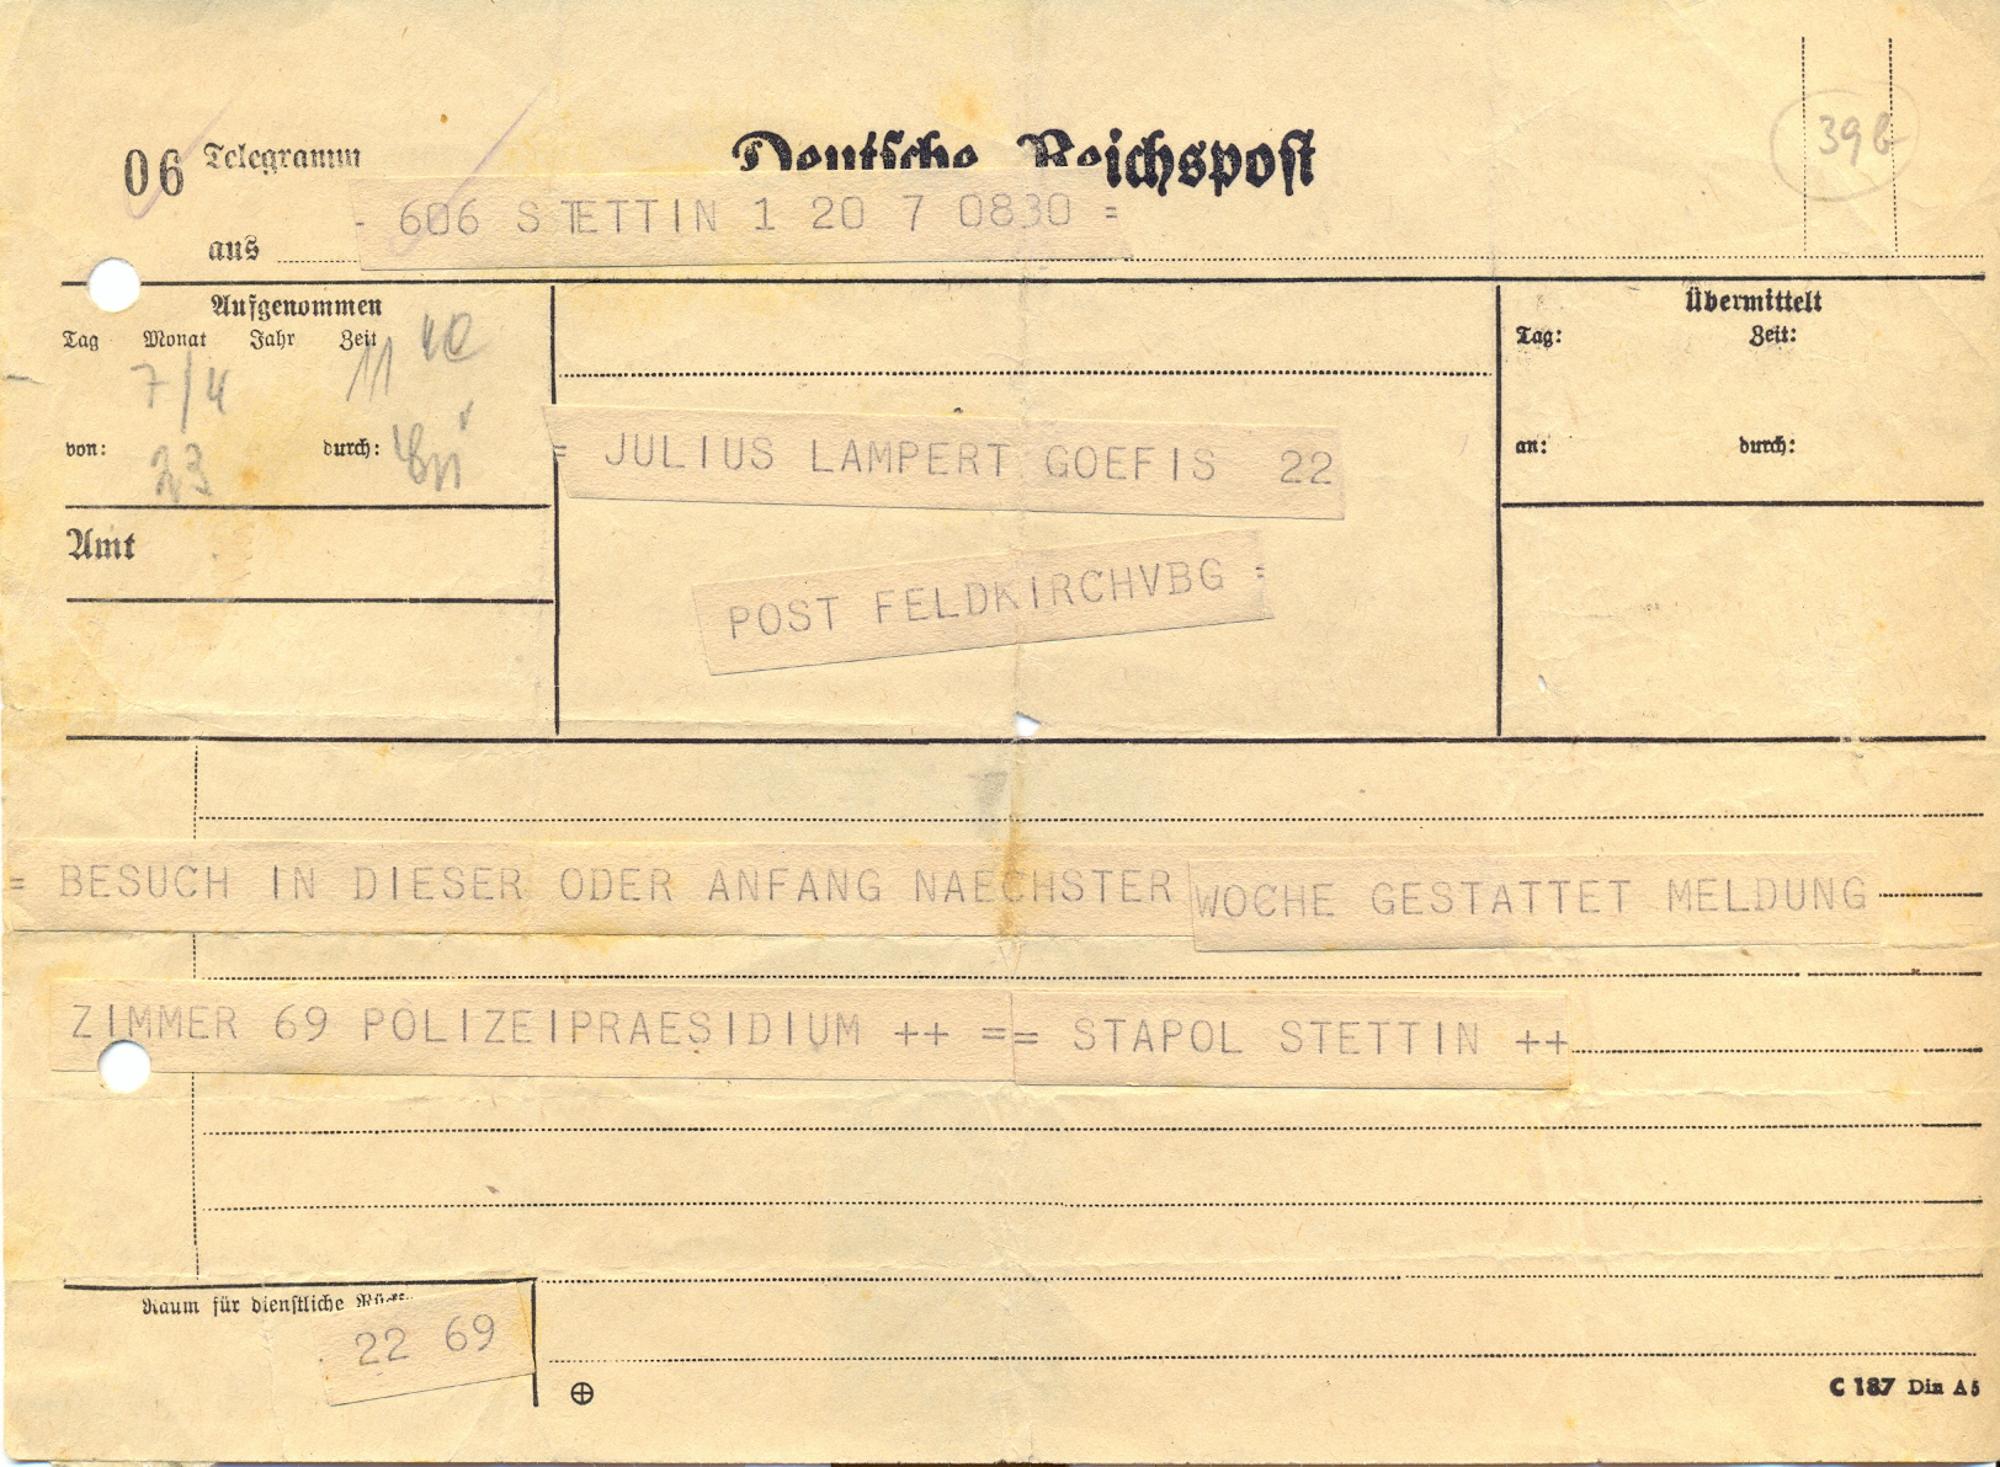 39b
06 Telegramm Deutsche Reichspost
- 606 STETTIN 1 20 7 0830 =
aus
Aufgenommen
Tag Monat Jahr Zeit
7/4 11 40
von: 23 durch:
Amt
Übermittelt
Tag: Zeit:
an: durch:
= JULIUS LAMPERT GOEFIS 22
POST FELDKIRCHVBG =
= BESUCH IN DIESER ODER ANFANG NAECHSTER WOCHE GESTATTET MELDUNG
ZIMMER 69 POLIZEIPRAESIDIUM ++ == STAPOL STETTIN ++
Raum für dienstliche
22 69
C 187 Din A5